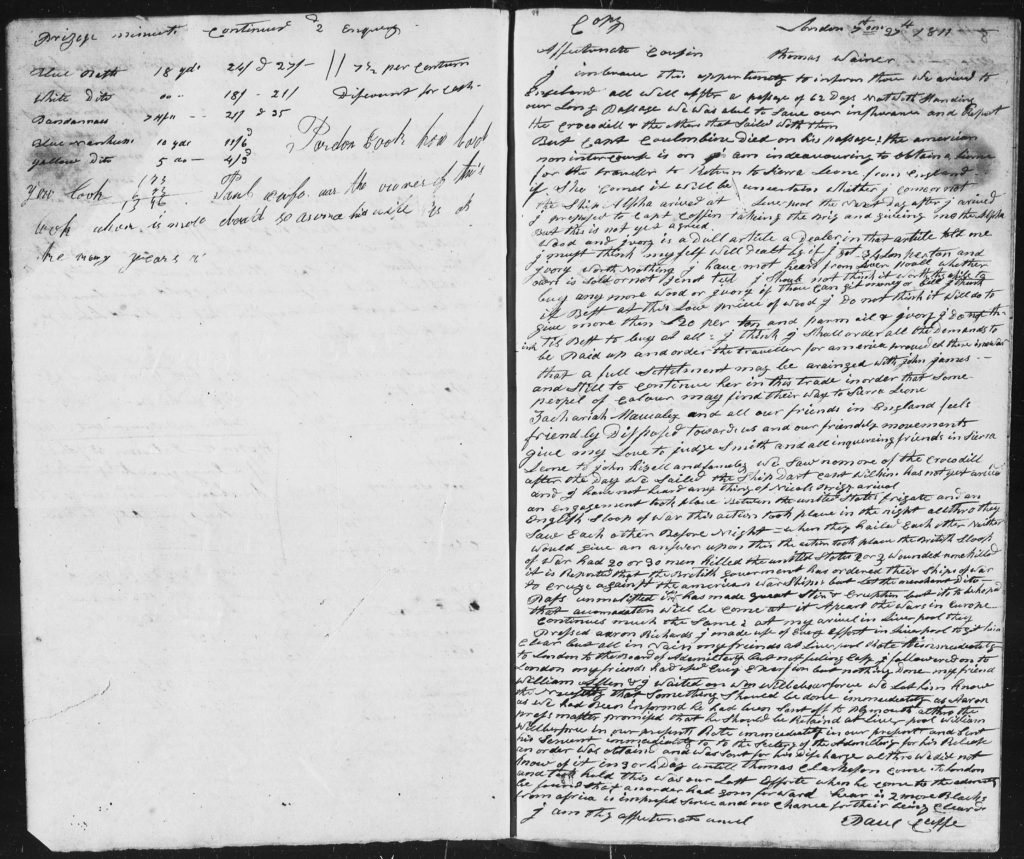 continued
Blue Ditto 18 yds 24/ & 27/- 7 1/2 per Centum
White Dito 18/ - 21/ Discount for Cash
Bandannas 21 & 35
Blue 10 yds 11/6
Yellow Dito 5 4/3
Pordon Book how
you look Paul was the owner of this
book when is
the many years
Copy London 27th 1811
Affectunate Cousin Thomas Wainer
j imbrace this oppertunity to inform thee We arived to
all Well after a pasage of 62 Days Not With Standing
our Long Passage We Was abel to Save our inshurance and Report
the Crocodill & the others that Sailed With them
But Capt Coulombine Died on his passage: the american
non intercourse is on j am indeavouring to obtain a
for the traveller to Return to Sierra Leone from England
if She Comes it will be uncertain Whether j Come or not
the Ship Alpha arived at Liverpool the Next Day after j arived
j proposed to Capt Coffin taking the Brig and giveing me the Alpha
But this is not yet agreed.
Wood and jvory is a Dull article a Dealer in that article told me
j must think my self Well Dealt by if j got per ton and
jvory Worth Nothing j have not heard from Whether
ours is Sold or not j Should not think it worth to
buy any more Wood or jvory if thou Can git money or Bill j think
it Best at this Low price of Wood j Do not think it Will do to
give more then \$20 per ton and parm oil & jvory j do not th-
ink tis Best to buy at all: j think j Shall order all the Demands to
be Paid up and order the traveller for america provided there is no war
that a full Settelment may be arainged With john james --
and Still to Continue her in this trade inorder that Some
peopel of Colour may find their Way to Sierra Leone
Zachariah Macaley and all our friends in England feels
friendly Disposed towards us and our friendly movements
give my Love to judge Smith and all inquereing friends in Sierra
Leone to john Kizell and famaley We Saw no more of the Crocodill
after the Day We Sailed the Ship Dart Capt Wilkins has not yet arived
and j have not heard any thing of Nicols Brigg arival
an Engagement took place Between the united States frigate and an
English Sloop of War this action took place in the night altho they
Saw Each other Before Night = when they hailed Each other Neither
Would give an answer upon this the action took place the British Sloop
of War had 20 or 30 men Killed the united States 2 or 3 Wounded none killed
it is Reported that the British Goverment has ordered their Ships of War
to Cruze against the american War Ships but let the merchant Dito
Pass unmolisted this has made great Stir & but its to be hoped
that acomadation Will be Come at it Apears the Wars in Europe
Continues much the Same: at my arivel in Liverpool they
Pressed aaron Richards j made use of Every Effort in Liverpool to git him
Clear but all in Vain my friends at Liverpool Rote immediately
to London to the Board of Admiltery but not feeling Easy j followered on to
London my friends had Every Exertion but nothing done my friend
William Allen & j Waited on Wm Willbourforce We Let him know
the Necessity that Something Should be done immediately as Aaron
as We had Been informd he had been Sent off to Plymouth altho the
press master promised that he Should be Retaind at Liverpool William
Willberforce in our presents Rote immediately in our presents and Sent
his Servent immediately to the Sectery of the Admiltery for his Release
an order Was obtaind and was Sent for his Discharge altho We did not
know of it in 3 or 4 Days untill Thomas Clarkeson Came to London
and took hold this Was our Last Efforts when he Come to the admiralty
he found that an order had gorn forward hear is 2 more Blacks
from africa is imprest Since and no Chance for their being Clear
j am thy affectunate uncel Paul Cuffe